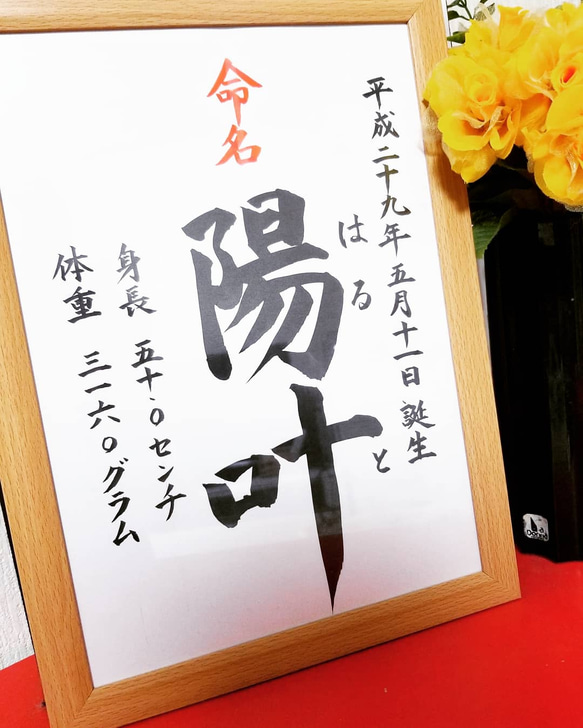 平成二十九年五月十一日誕生
はると
命名
陽叶
身長 五十.0センチ
体重 三一六0グラム